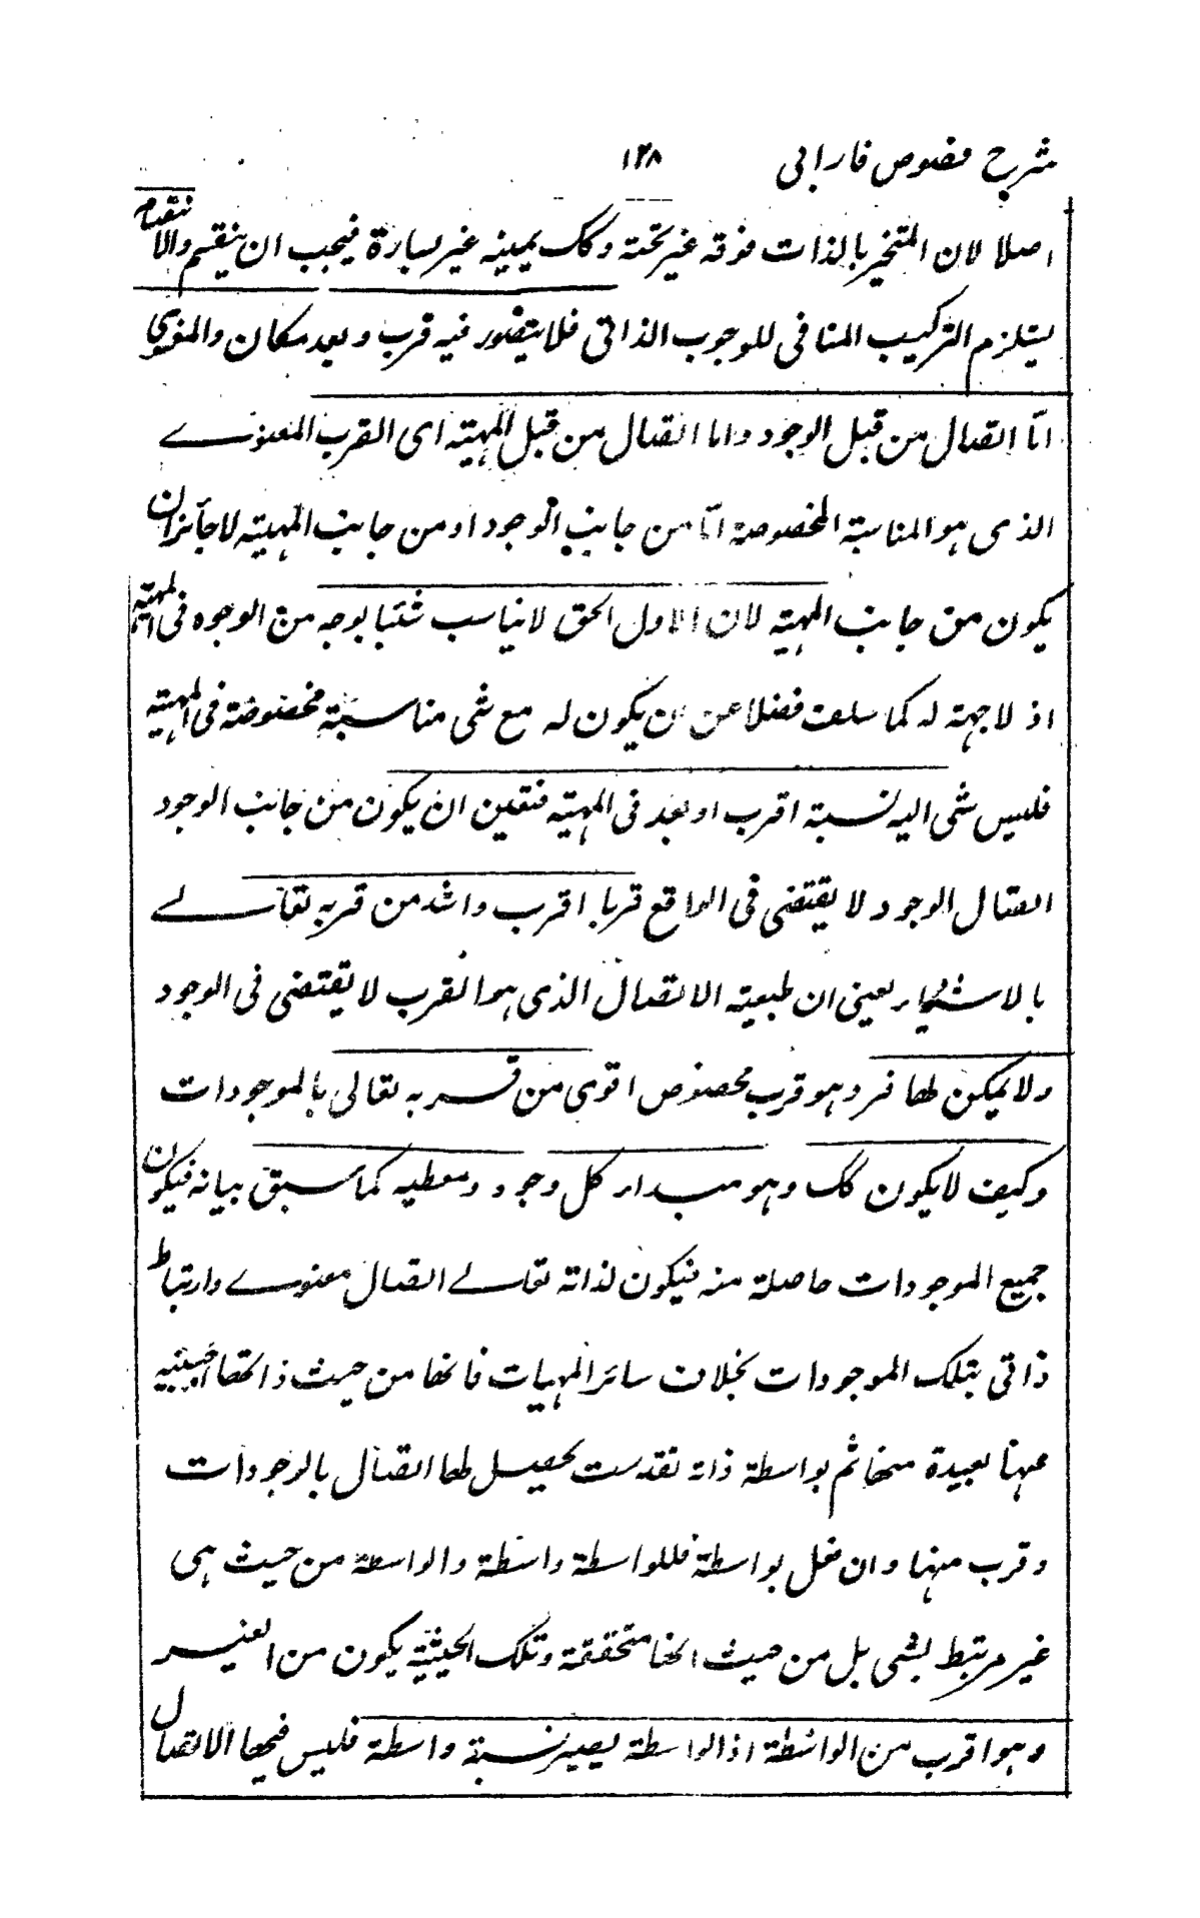 شرح فصوص فارابی ۱۲۸
اصلا لان المتحیز بالذات فوقه غیر تحته وکک یمینه غیر یساره فیجب ان ینقسم والانقسام
یستلزم الترکیب المنافی للوجوب الذاتی فلا یتصور فیه قرب وبعد مکان والمعنوی
امّا اتصال من قبل الوجود واما اتصال من قبل المهیته ای القرب المعنوے
الذی هو المناسبة المخصوصة امّا من جانب الوجود او من جانب المهیته لا جائز ان
یکون من جانب المهیته لان الاول الحق لا یناسب شئیا بوجه من الوجوه فی المهیته
اذ لا جهته له کما سلف فضلا عن ان یکون له مع شی مناسبة مخصوصة فی المهیته
فلیس شی الیه نسبة اقرب او بعد فی المهیته فتعین ان یکون من جانب الوجود
اتصال الوجود لا یقتضی فی الواقع قربا اقرب واشد من قربه تعالے
بالاشیاء یعنی ان طبعیته الاتصال الذی هو القرب لا یقتضی فی الوجود
ولا یمکن لها فرد هو قرب مخصوص اقوی من قربه تعالی بالموجودات
وکیف لا یکون کک وهو مبداء کل وجود ومعطیه کما سبق بیانه فیکون
جمیع الموجودات حاصلة منه فیکون لذاته تعالے اتصال معنوے وارتباط
ذاتی بتلک الموجودات بخلاف سائر المهیات فانها من حیث ذاتها اجنبیه
عنها بعیدة منها ثم بواسطة ذاته تقدست یحصیل لها اتصال بالوجودات
وقرب منها وان فعل بواسطة فللواسطة واسطة والواسطة من حیث هی
غیر مرتبط بشی بل من حیث انها متحققة وتلک الحیثیة یکون من الغیر
وهو اقرب من الواسطة اذ الواسطة یصیر نسبة واسطة فلیس فیها الاتصال